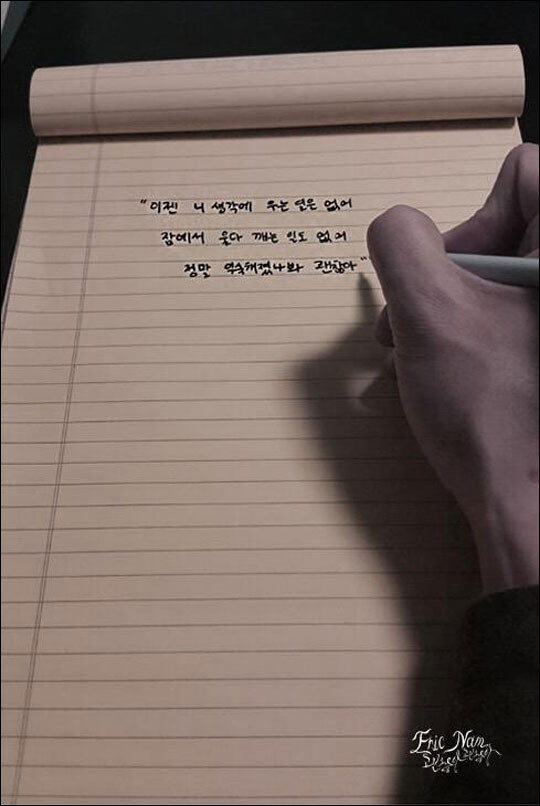 "이젠 니 생각에 우는 일은 없어
잠에서 울다 깨는 일도 없어
정말 익숙해졌나봐 괜찮아"
Eric Nam
괜찮아 괜찮아